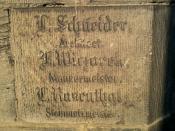 L. Schneider,
Architect.
F. Wieczorek,
Maurermeister.
C. Rosenthal,
Steinmetzmeister.